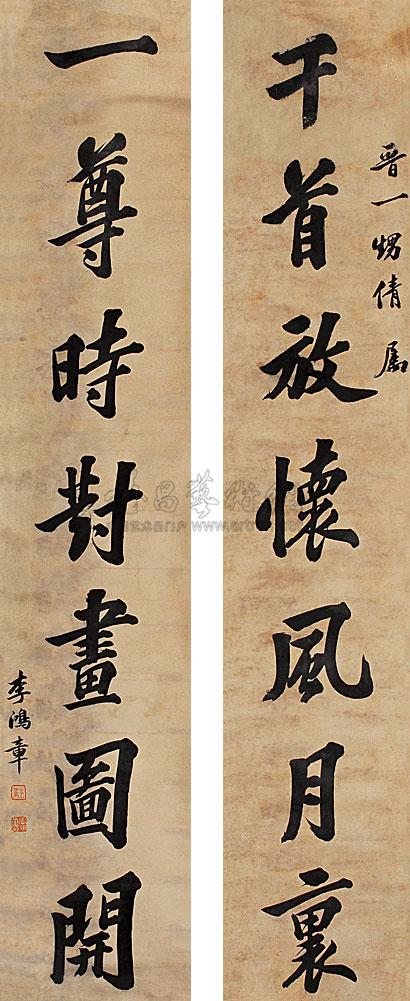 千首放懷風月裏
晉一甥倩屬
一尊時對畫圖開
李鴻章